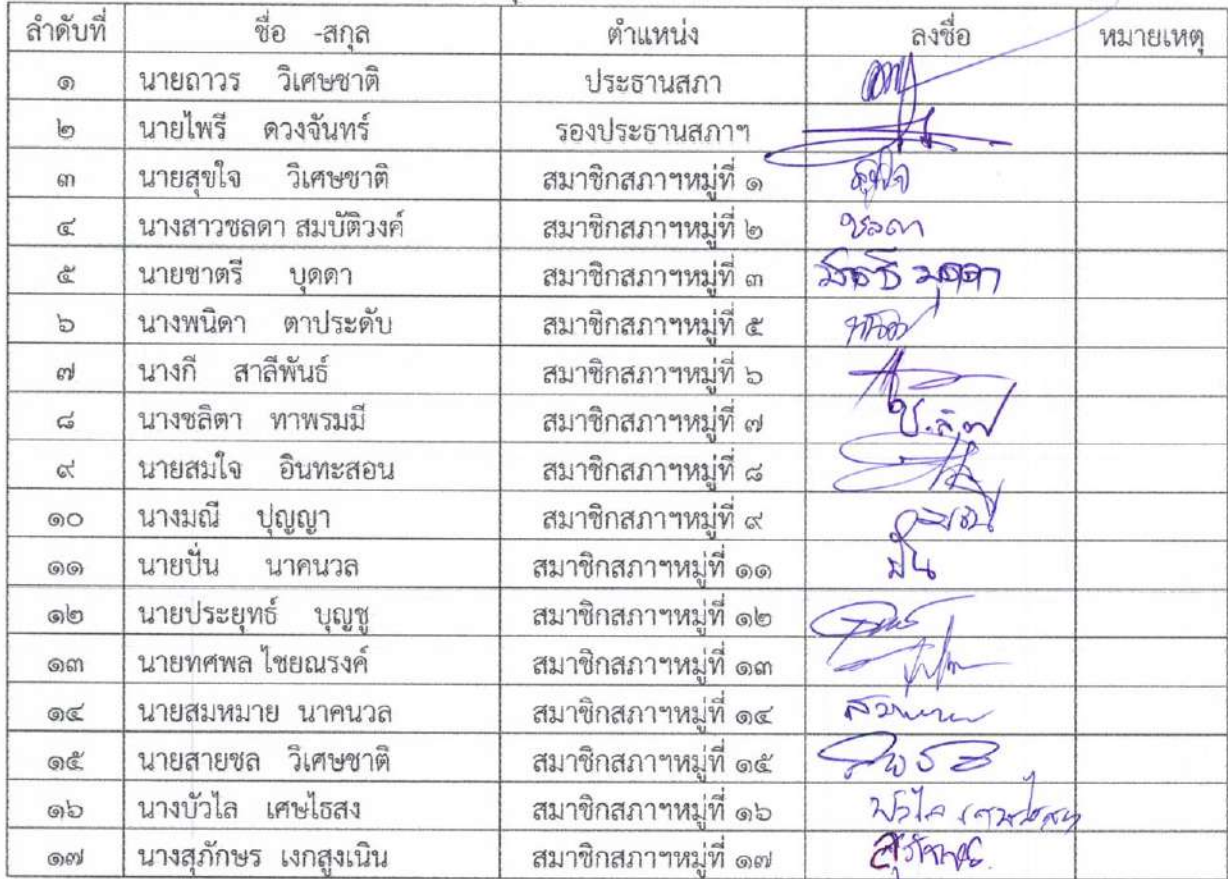 ลำดับที่ ชื่อ -สกุล ตำแหน่ง ลงชื่อ หมายเหตุ
๑ นายถาวร วิเศษชาติ ประธานสภา
๒ นายไพรี ดวงจันทร์ รองประธานสภาฯ
๓ นายสุขใจ วิเศษชาติ สมาชิกสภาฯหมู่ที่ ๑ สุขใจ
๔ นางสาวชลดา สมบัติวงค์ สมาชิกสภาฯหมู่ที่ ๒ ชลดา
๕ นายชาตรี บุดดา สมาชิกสภาฯหมู่ที่ ๓ ชาตรี บุดดา
๖ นางพนิดา ตาประดับ สมาชิกสภาฯหมู่ที่ ๕
๗ นางกี สาลีพันธ์ สมาชิกสภาฯหมู่ที่ ๖
๘ นางชลิตา ทาพรมมี สมาชิกสภาฯหมู่ที่ ๗
๙ นายสมใจ อินทะสอน สมาชิกสภาฯหมู่ที่ ๘
๑๐ นางมณี ปุญญา สมาชิกสภาฯหมู่ที่ ๙
๑๑ นายปั่น นาคนวล สมาชิกสภาฯหมู่ที่ ๑๑ ปั่น
๑๒ นายประยุทธ์ บุญชู สมาชิกสภาฯหมู่ที่ ๑๒
๑๓ นายทศพล ไชยณรงค์ สมาชิกสภาฯหมู่ที่ ๑๓
๑๔ นายสมหมาย นาคนวล สมาชิกสภาฯหมู่ที่ ๑๔
๑๕ นายสายชล วิเศษชาติ สมาชิกสภาฯหมู่ที่ ๑๕
๑๖ นางบัวไล เศษไธสง สมาชิกสภาฯหมู่ที่ ๑๖ บัวไล เศษไธสง
๑๗ นางสุภักษร เงกสูงเนิน สมาชิกสภาฯหมู่ที่ ๑๗